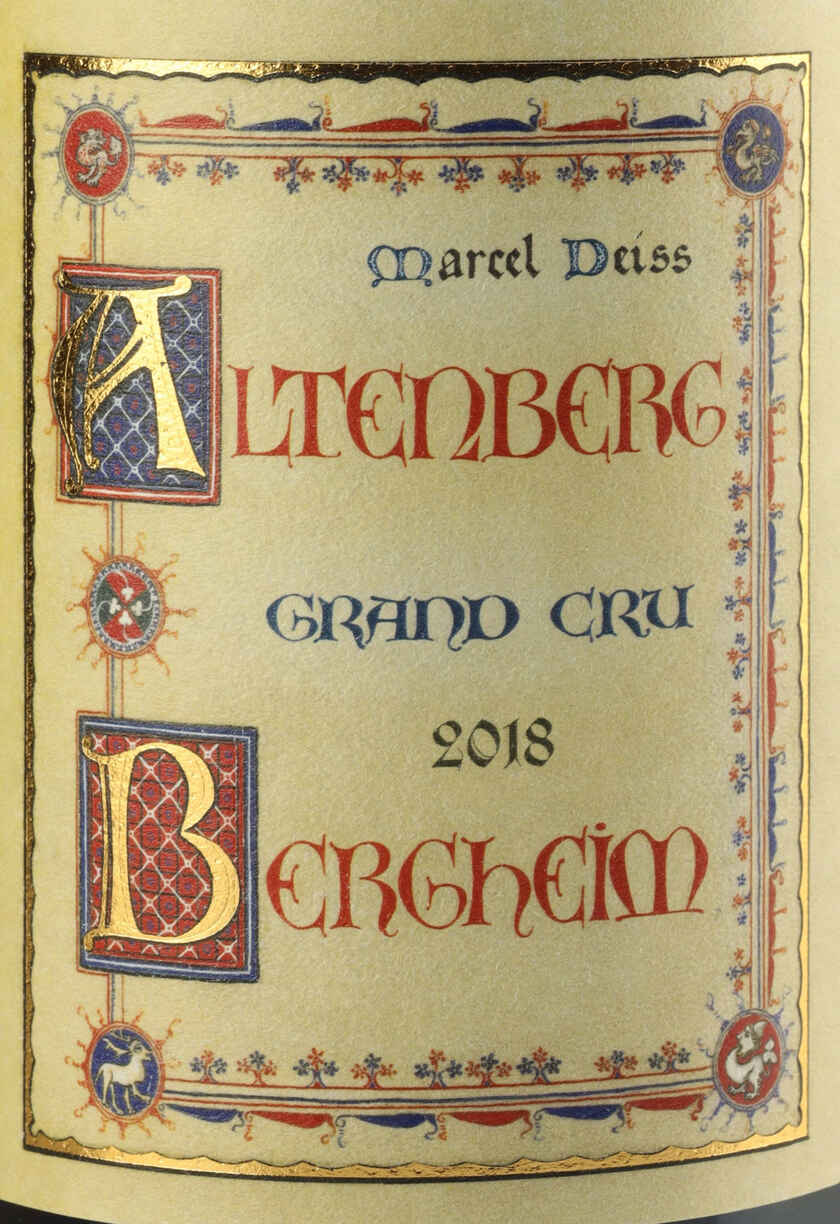 Marcel Deiss
ALTENBERG
GRAND CRU
2018
BERGHEIM